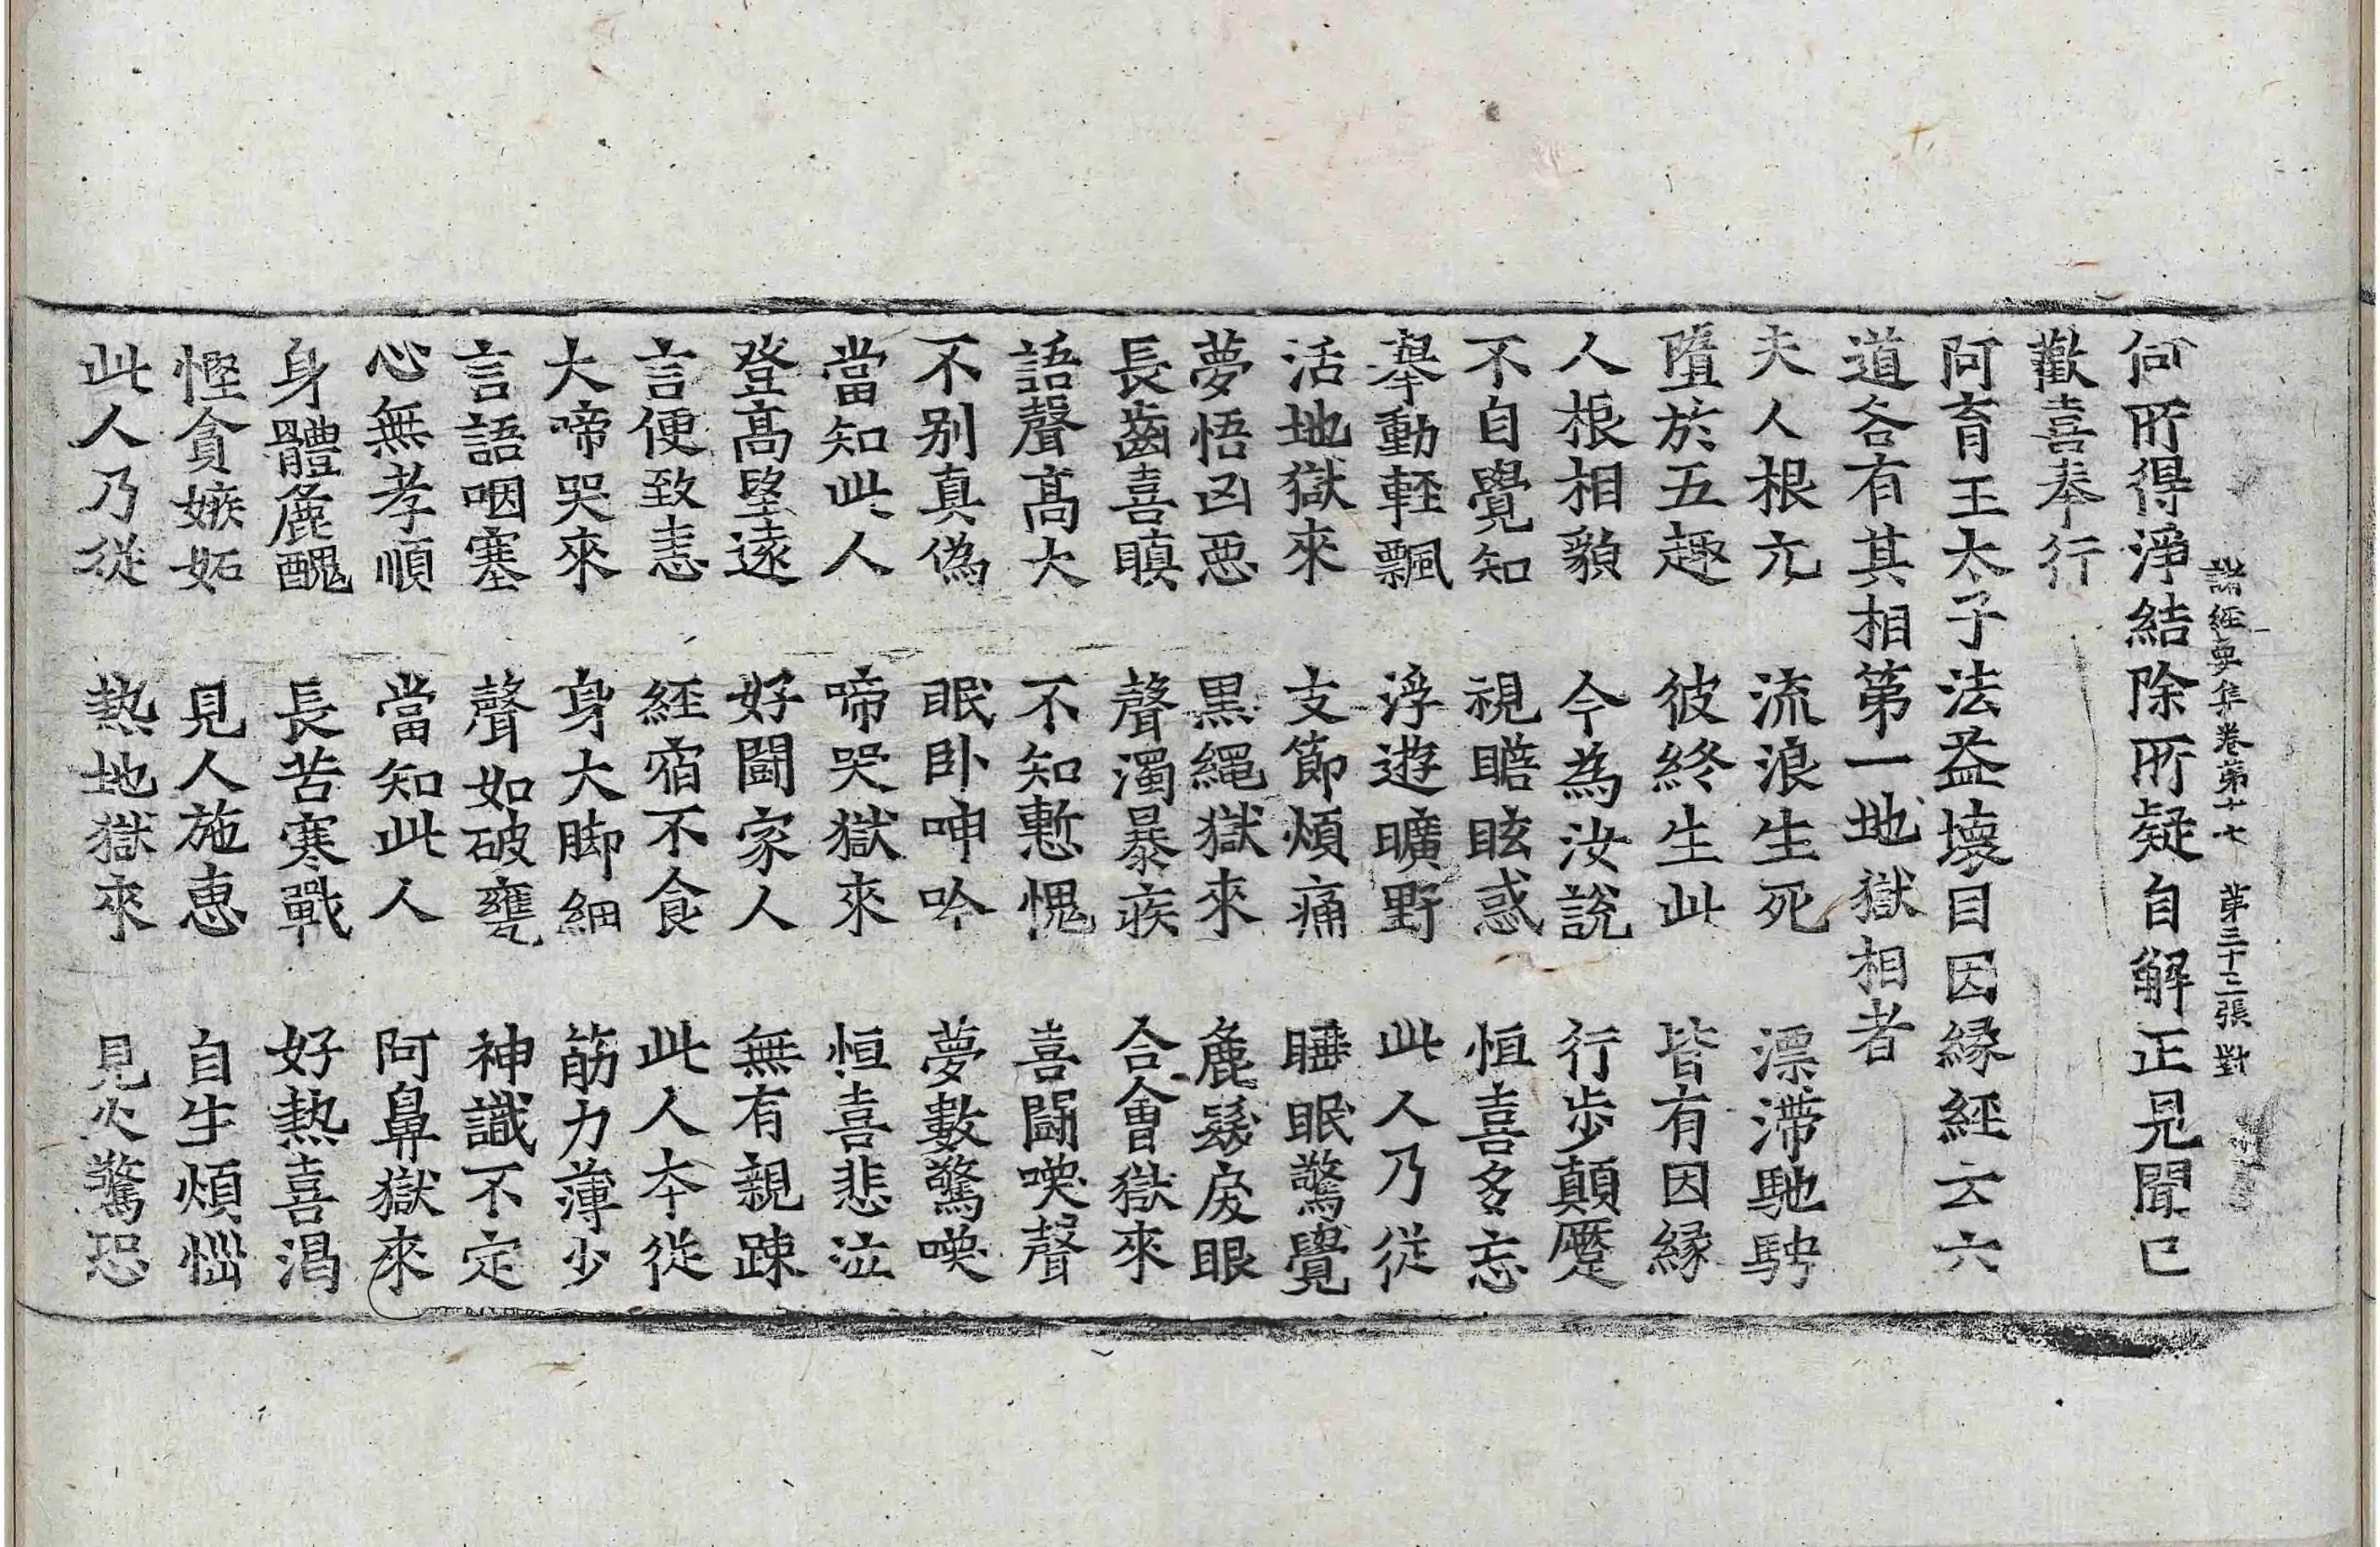 諸經要集卷第十七 第三十二張 對
何所得淨結除所疑自解正見聞已
歡喜奉行
阿育王太子法益壞目因緣經云六
道各有其相第一地獄相者
夫人根亢 流浪生死 漂滯馳騁
墮於五趣 彼終生此 皆有因緣
人根相貌 今為汝說 行步顛蹷
不自覺知 視瞻眩惑 恒喜多忘
舉動輕飄 浮遊曠野 此人乃從
活地獄來 支節煩痛 睡眠驚覺
夢悟凶惡 黑繩獄來 麁髮戾眼
長齒喜瞋 聲濁暴疾 合會獄來
語聲高大 不知慙愧 喜鬪喚聲
不別真偽 眠臥呻吟 夢數驚喚
當知此人 啼哭獄來 恒喜悲泣
登高望遠 好鬪家人 無有親踈
言便致恚 經宿不食 此人本從
大啼哭來 身大脚細 筋力薄少
言語咽塞 聲如破甕 神識不定
心無孝順 當知此人 阿鼻獄來
身體麁醜 長苦寒戰 好熱喜渴
慳貪嫉妬 見人施惠 自生煩惱
此人乃從 熱地獄來 見火驚恐